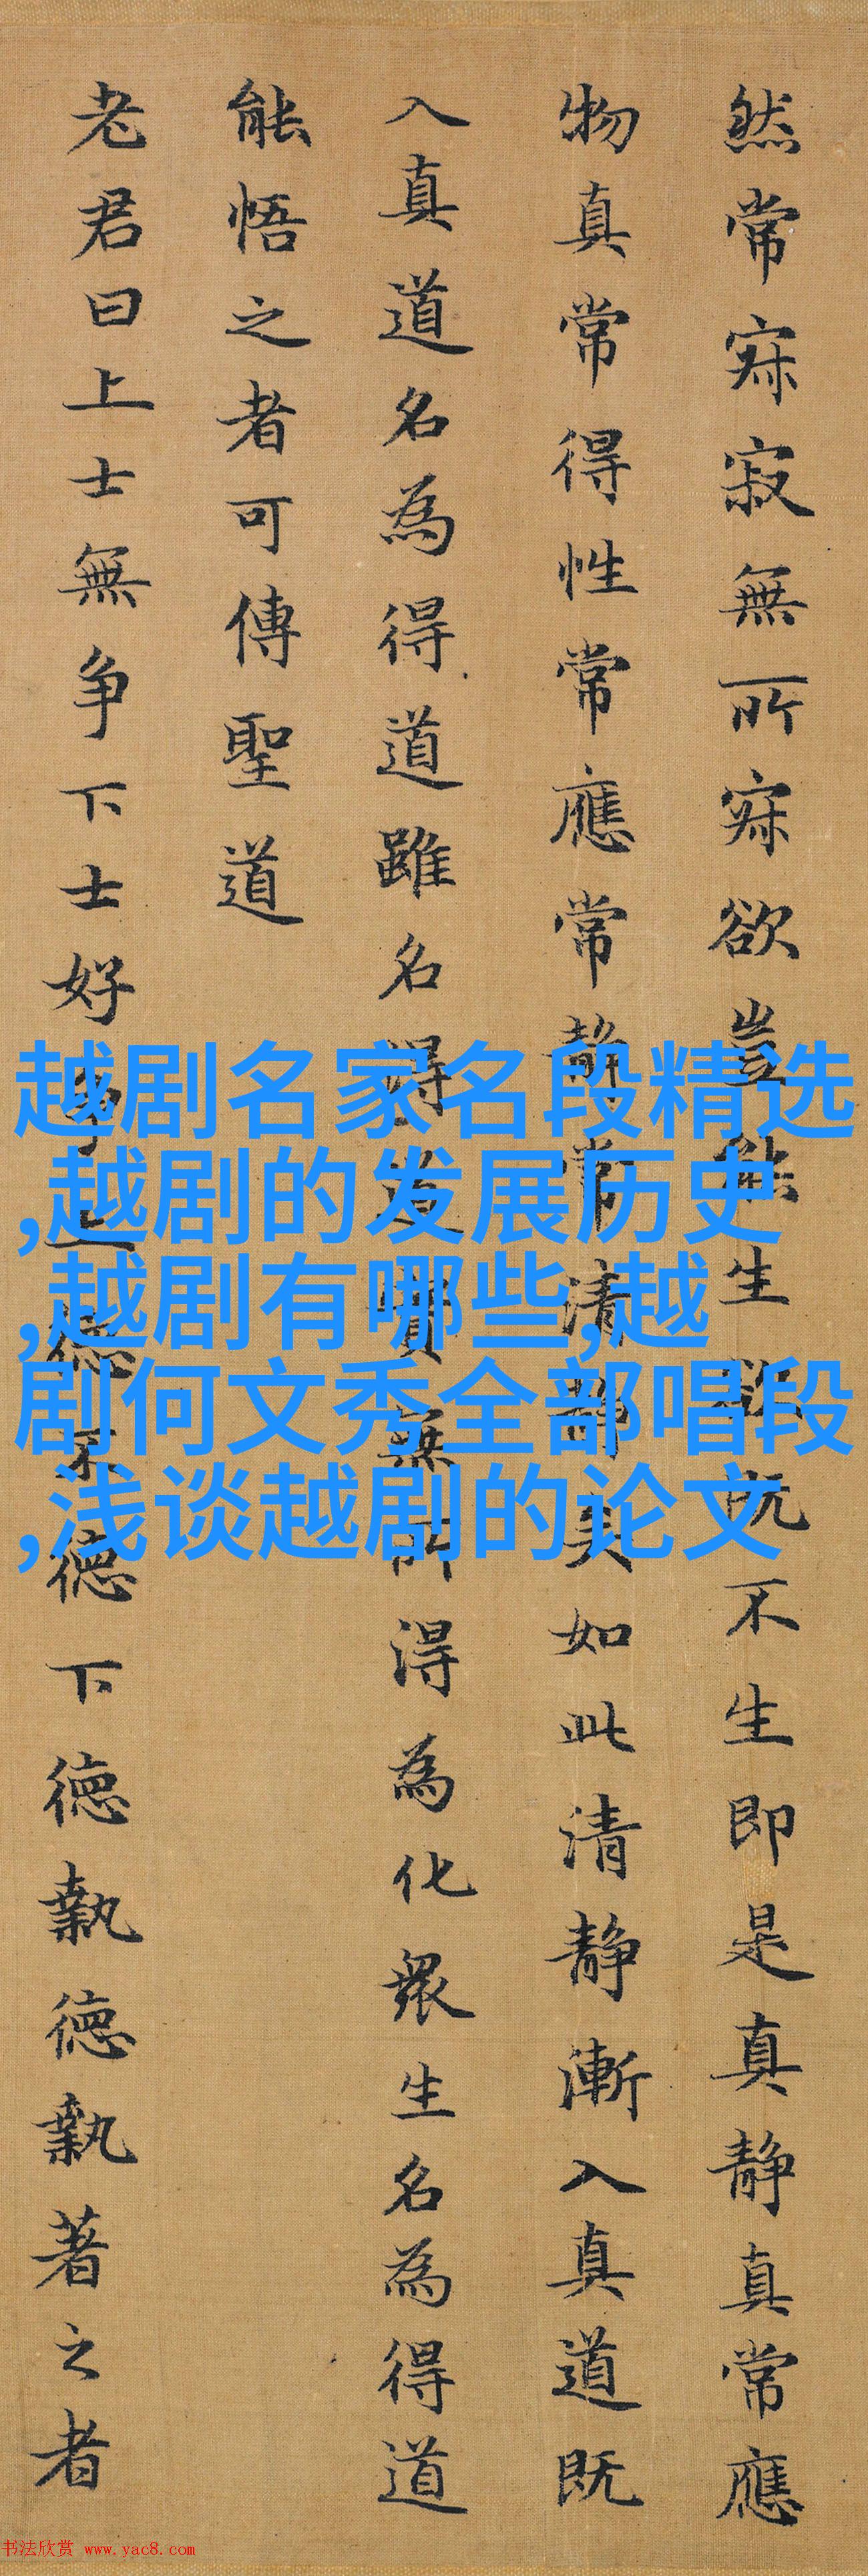 然常寂寂無所寂欲豈能生欲既不生即是真静真常應
物真常得性常應常静常清静矣如此清静漸入真道既
入真道名為得道雖名得道實無所得為化眾生名為得道
能悟之者可傳聖道
老君曰上士無争下士好争上德不德下德執德執著之者
越剧名家名段精选
,越剧的发展历史
,越剧有哪些,越
剧何文秀全部唱段
,浅谈越剧的论文
书法欣赏 www.yac8.com